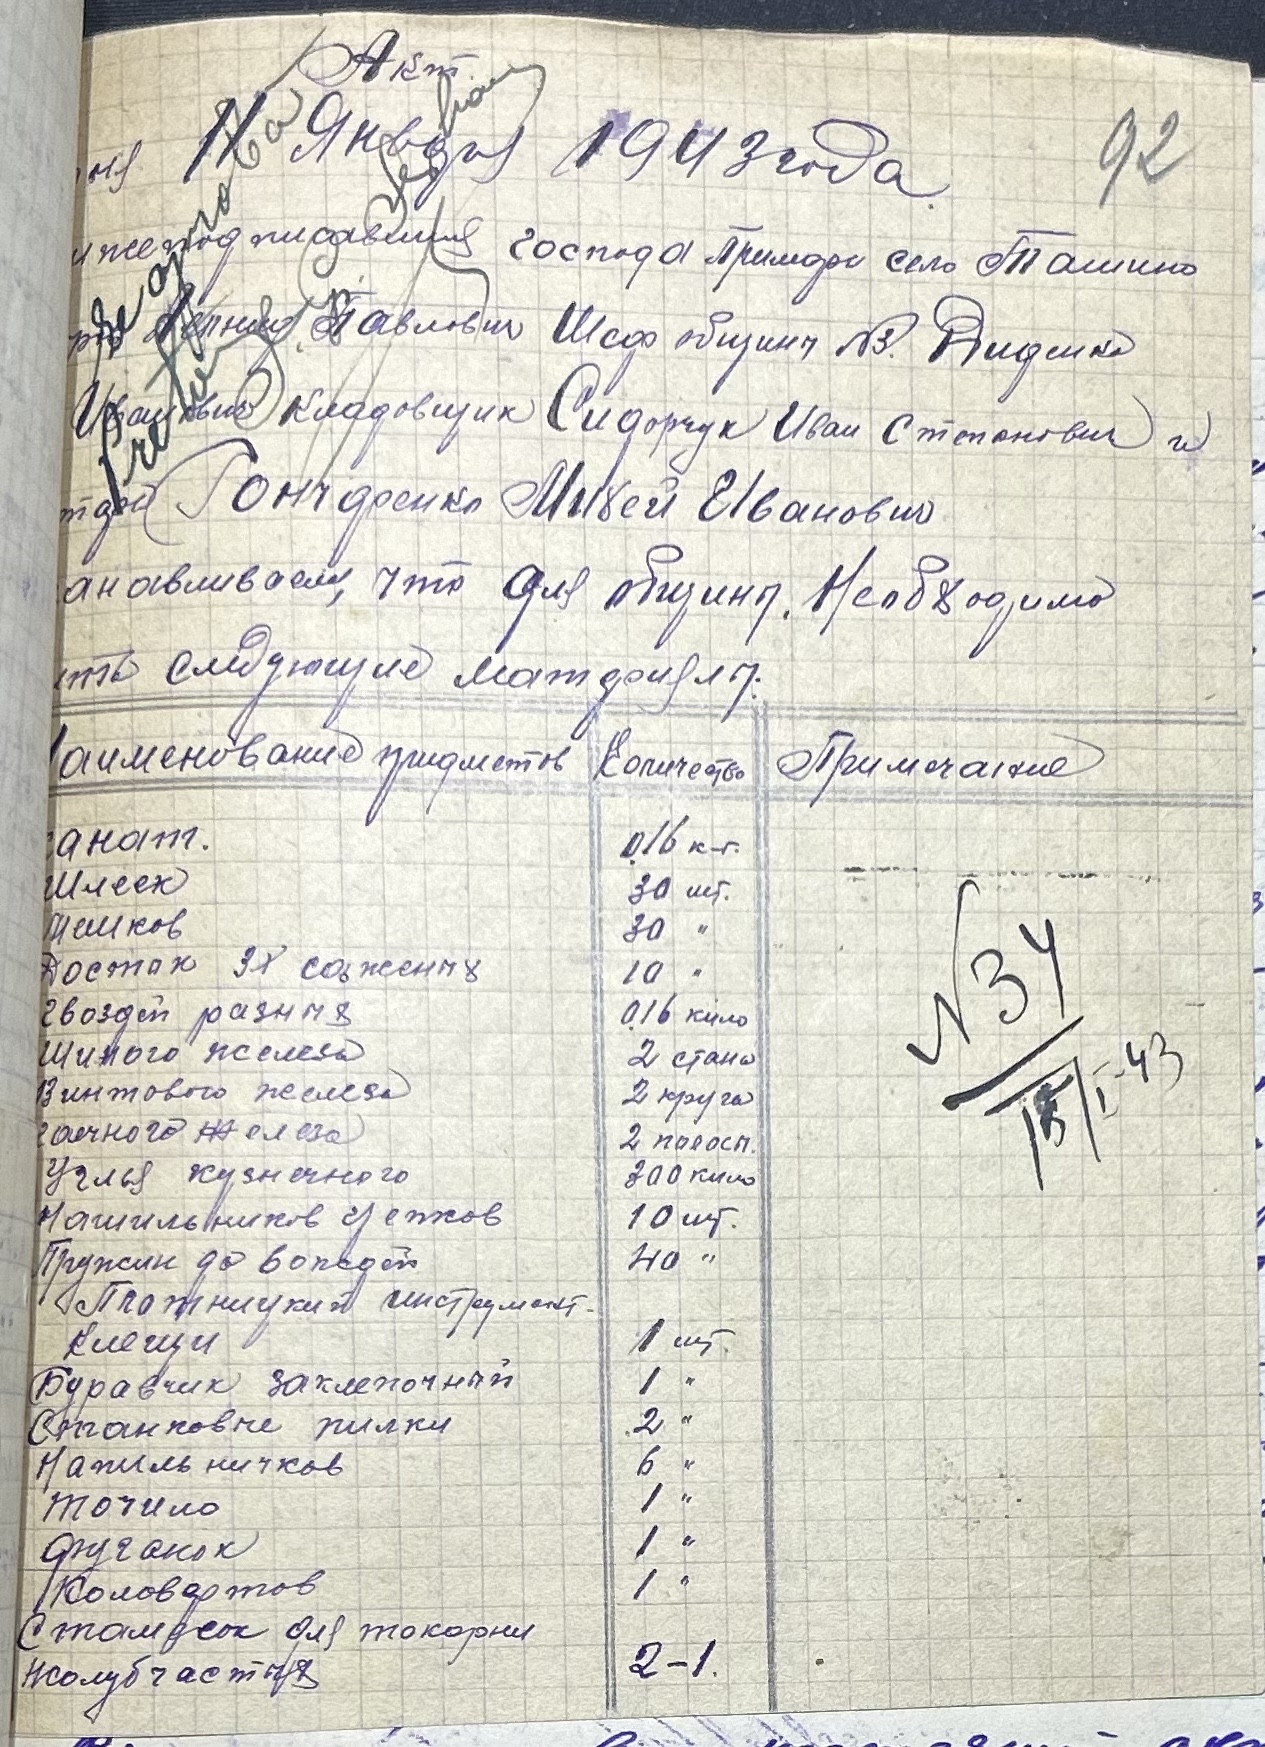 Акт
11 Января 1943 года.
92
ижеподписавшия господа Примарь село Ташино
Павлович Шеф общины №3. Диденко
Иванович Кладовщик Сидорчук Иван Степанович и
Гончаренко Михей Иванович
анавливаем, что для общины. Необходимо
следующие материялы.
Наименование предметов Количество Примечание
канат. 016 к-г.
Шлеек 30 шт.
Мешков 30 "
Досток 3х саженных 10 "
гвоздей разных 016 кило
Шиного железа 2 стана
Винтового железа 2 круга
гаечного железа 2 полосы.
Угля кузнечного 300 кило
Нашильников цепков 10 шт.
Пружин до 40 "
Плотницкий инструмент.
Клещи 1 шт.
Буравчик заклепочный 1 "
Станковые пилки 2 "
Напильничков 6 "
Точило 1 "
Фуганок 1 "
Коловартов 1 "
Стамесок для токарни
жолубчастых 2-1.
№34
15/I-43